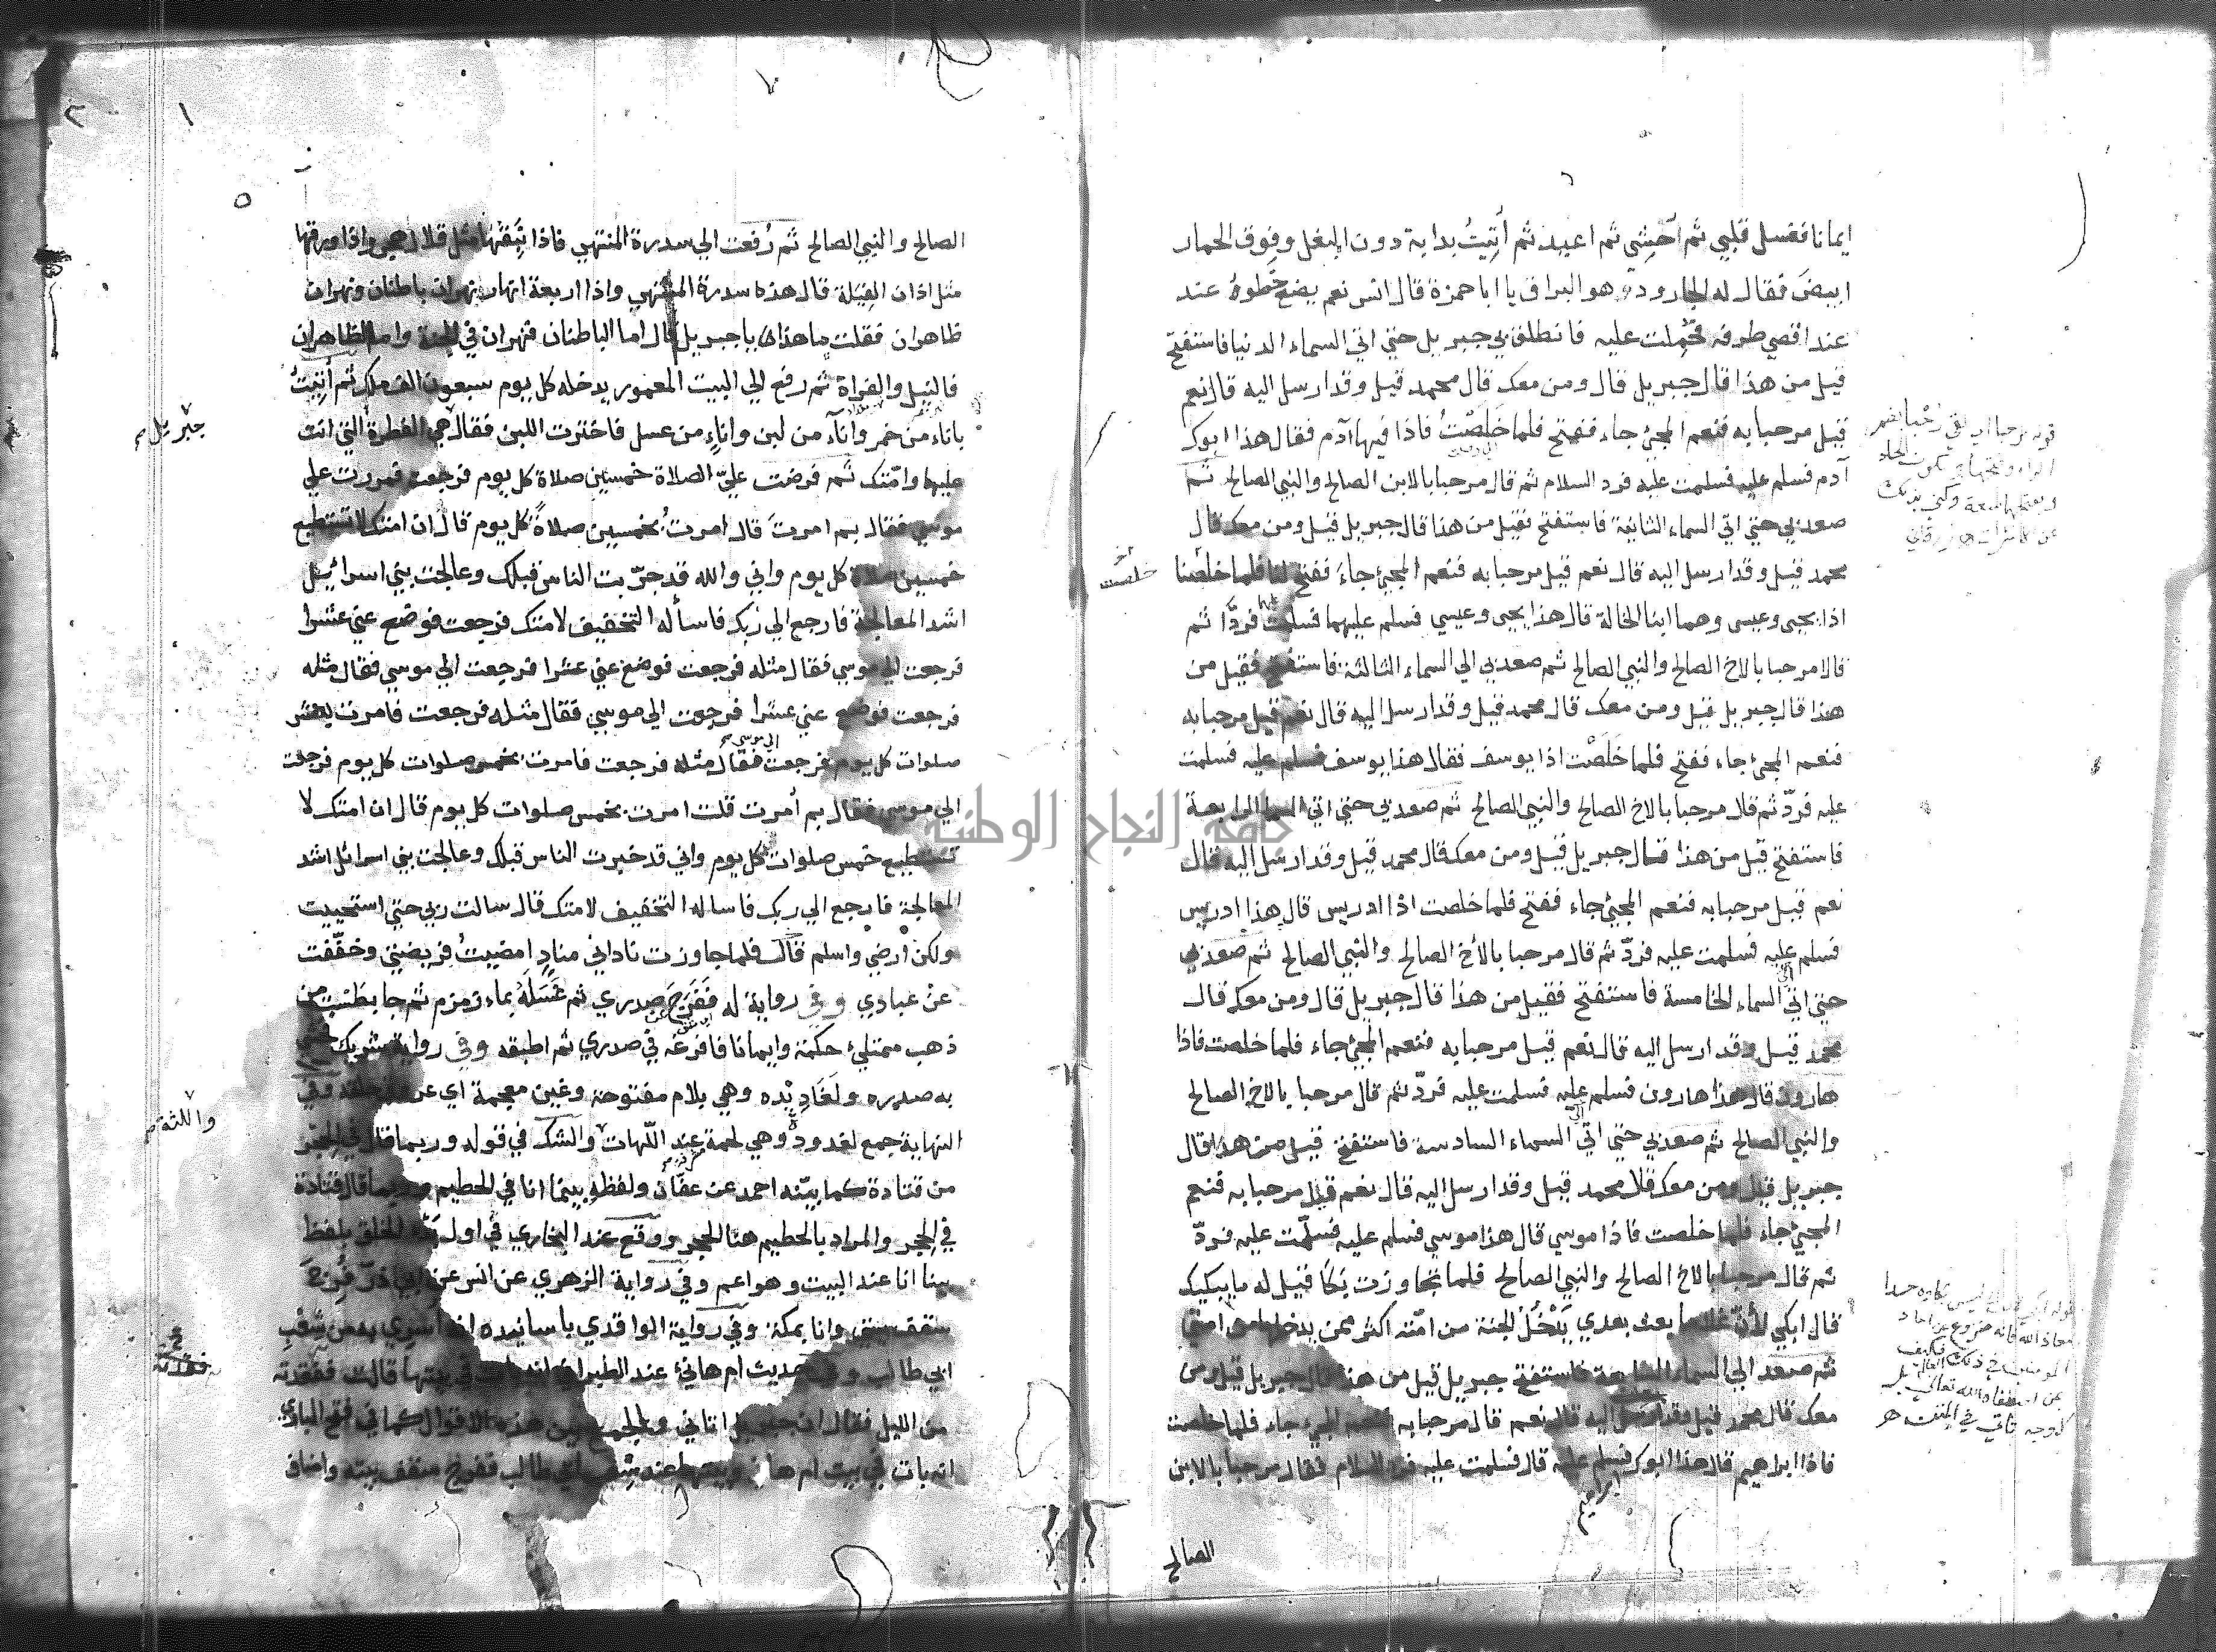 ايمانا فغسل قلبي ثم حشي ثم اعيد ثم أُتيتُ بدابة دون البغل وفوق الحمار
ابيضَ فقال له الجارود هو البراق يا ابا حمزة قال انس نعم يضع خطوهُ عند
عند اقصي طرفه فحُملت عليه فانطلق بي جبريل حتي اتي السماء الدنيا فاستفتح
قيل من هذا قال جبريل قال ومن معك قال محمد قيل وقد ارسل اليه قال نعم
قيل مرحبا به فنعم المجئ جاء ففتح فلما خَلَصْتُ فاذا فيها آدم فقال هذا ابوك
آدم فسلم عليه فسلمت عليه فرد السلام ثم قال مرحبا بالابن الصالح والنبي الصالح ثم
صعد بي حتي اتي السماء الثانية فاستفتح فقيل من هذا قال جبريل قيل ومن معك قال
محمد قيل وقد ارسل اليه قال نعم قيل مرحبا به فنعم المجئ جاءَ ففتح لنا فلما خلصنا
خلصت
اذا يحيى وعيسى وهما ابنا الخالة قال هذا يحيى وعيسي فسلم عليهما فسلمت فردّا ثم
قالا مرحبا بالاخ الصالح والنبي الصالح ثم صعد بي الي السماء الثالثة فاستفتح فقيل من
هذا قال جبريل قيل ومن معك قال محمد قيل وقد ارسل اليه قال نعم قيل مرحبا به
فنعم المجئ جاء ففتح فلما خَلَصْت اذا يوسف فقال هذا يوسف فسلم عليه فسلمت
عليه فردّ ثم قال مرحبا بالاخ الصالح والنبي الصالح ثم صعد بي حتي اتي السما الرابعة
فاستفتح قيل من هذا قال جبريل قيل ومن معك قال محمد قيل وقد ارسل اليه قال
نعم قيل مرحبا به فنعم المجئ جاء ففتح فلما خلصت اذا ادريس قال هذا ادريس
فسلم عليه فسلمت عليه فردّ ثم قال مرحبا بالأخ الصالح والنبي الصالح ثم صعد بي
حتي اتي السماء الخامسة فاستفتح فقيل من هذا قال جبريل قال ومن معك قال
محمد قيل وقد ارسل اليه قال نعم قيل مرحبا به فنعم المجئ جاء فلما خلصت فاذا
هارون قال هذا هارون فسلم عليه فسلمت عليه فردّ ثم قال مرحبا بالاخ الصالح
والنبي الصالح ثم صعد بي حتي اتي السماء السادسة فاستفتح قيل من هذا قال
جبريل قيل ومن معك قال محمد قيل وقد ارسل اليه قال نعم قيل مرحبا به فنعم
المجئ جاء فلما خلصت فاذا موسي قال هذا موسي فسلم عليه فسلّمت عليه فردّ
ثم قال مرحبا بالاخ الصالح والنبي الصالح فلما تجاوزت بَكَا فقيل له ما يبكيك
قال ابكي لأنّ غلاما بعث بعدي يَدْخُلُ الجنة من امّته اكثر ممن يدخلها من امتي
ثم صعد الي السماء السابعة فاستفتح جبريل قيل من هذا قال جبريل قيل ومن
معك قال محمد قيل وقد ارسل اليه قال نعم قال مرحبا به فنعم المجئ جاء فلما خلصت
فاذا ابراهيم قال هذا ابوك فسلم عليه قال فسلمت عليه فرد السلام فقال مرحبا بالابن
ابراهيم
الصالح
الصالح والنبي الصالح ثم رُفعت الي سدرة المنتهي فاذا نَبِقُها مثل قلال هجر واذا ورقها
مثل اذان الفِيَلة قال هذه سدرة المنتهي واذا اربعة انهار نهران باطنان ونهران
ظاهران فقلت ما هذان يا جبريل قال اما الباطنان فنهران في الجنة واما الظاهران
فالنيل والفراة ثم رفع الي البيت المعمور يدخله كل يوم سبعون الف ملك ثم أُتيتُ
باناء من خمر وآنآء من لبن واناءٍ من عسل فاخترت اللبن فقال هي الفطرة التي انت
جبريل
عليها وامّتك ثم فرضت عليّ الصلاة خمسين صلاة كل يوم فرجعت فمررت علي
موسي فقال بم امرتَ قال امرتُ بخمسين صلاةً كل يوم قال ان امتك لا تستطيع
خمسين صلاة كل يوم واني والله قد جرّبت الناس قبلك وعالجت بني اسرائيل
اشد المعالجة فارجع الي ربك فاسأله التخفيف لامتك فرجعت فوضع عني عشرا
فرجعت الي موسي فقال مثله فرجعت فوضع عني عشرا فرجعت الي موسي فقال مثله
فرجعت فوضع عني عشرا فرجعت الي موسي فقال مثله فرجعت فامرت بعشر
صلوات كل يوم فرجعت الي موسي فقال مثله فرجعت فامرت بخمس صلوات كل يوم فرجعت
الي موسي فقال بم أمرت قلت امرت بخمس صلوات كل يوم قال ان امتك لا
تستطيع خمس صلوات كل يوم واني قد خبرت الناس قبلك وعالجت بني اسرائل اشد
المعالجة فارجع الي ربك فاساله التخفيف لامتك قال سالت ربي حتي استحييت
ولكن أرضي واسلم قال فلما جاوزت ناداني منادٍ امضيتُ فريضتي وخفّفت
عنْ عبادي وفي رواية له فَفَرَجَ صدري ثم غَسَلَهُ بماء زمزم ثم جا بطَسْتٍ من
ذهب ممتلئ حكمة وايمانا فافرغه في صدري ثم اطبقه وفي رواية شريك
به صدره ولَغَادِيْدَه وهي بلام مفتوحة وغين معجمة اي عروق حلقه وفي
النهاية جمع لغدود وهي لحمة عند اللّهات والشك في قوله وربما قال في الحِجْر
واللثة
من قتادة كما بيّنه احمد عن عفّان ولفظه بينما انا في الحطيم وربما قال قتادة
في الحِجر والمراد بالحطيم هنا الحجر ووقع عند البخاري في اول بَدْء الخلق بلفظ
بينا انا عند البيت وهو اعم وفي رواية الزهري عن انس عن ابي ذرّ فُرِجَ
سقف بيتي وانا بمكة وفي رواية الواقدي باسانيده انه اسري به من شِعْبِ
ابي طالب وفي حديث ام هانئ عند الطبراني انه بات في بيتها قالت ففقدته
من الليل فقال ان جبريل اتاني والجمع بين هذه الاقوال كما في فتح الباري
انه بات في بيت ام هانئ وبيتها عند شعب ابي طالب ففرج سقف بيته واضاف
جامعة النجاح الوطنية